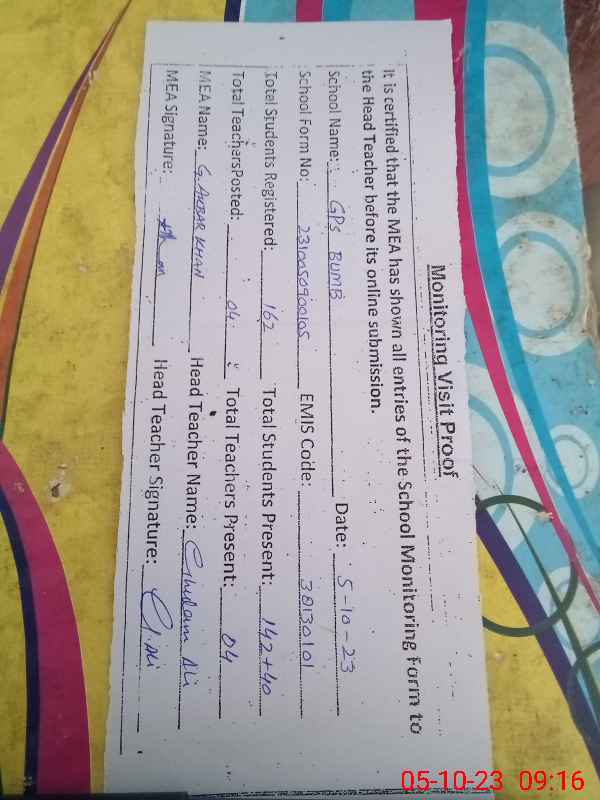 Monitoring Visit Proof
It is certified that the MEA has shown all entries of the School Monitoring form to
the Head Teacher before its online submission.
School Name: GPS BUMB Date: 5-10-23
School Form No: 2310050900105 EMIS Code: 38130101
Total Students Registered: 162 Total Students Present: 142+40
Total TeachersPosted: 04 Total Teachers Present: 04
MEA Name: G. AKBAR KHAN Head Teacher Name: Ghulam Ali
MEA Signature: Head Teacher Signature: G. Ali
05-10-23 09:16